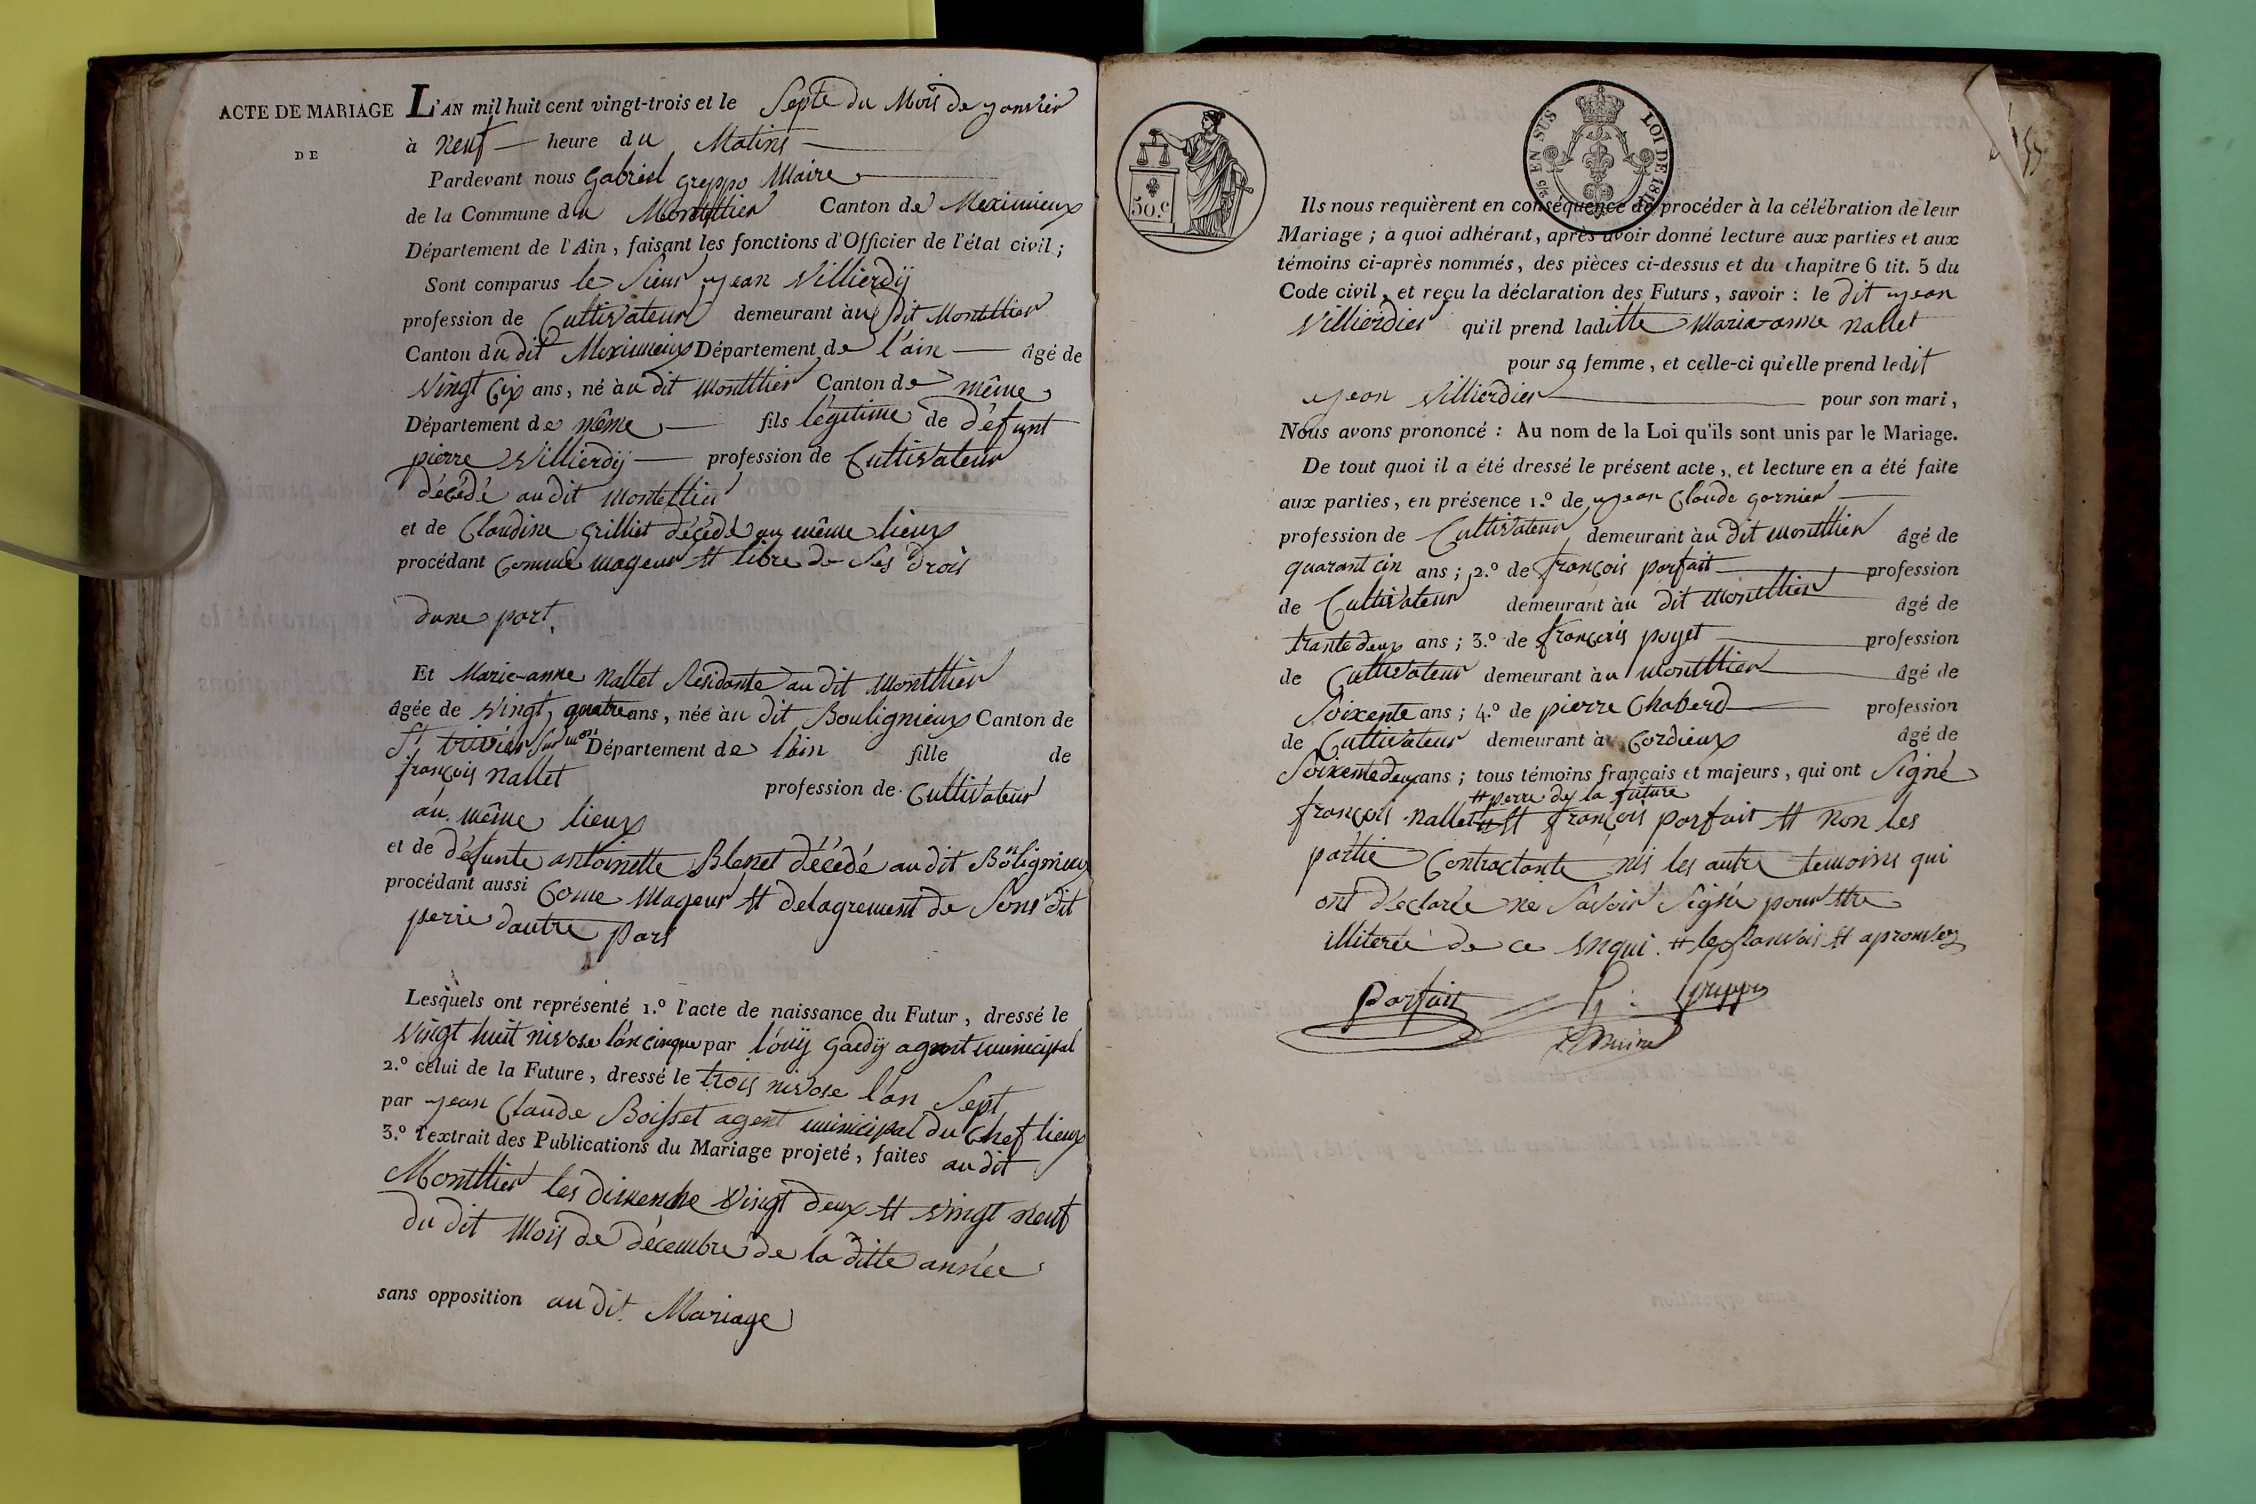 ACTE DE MARIAGE
DE
L'AN mil huit cent vingt-trois et le Septe du Mois de janvier
à neuf heure du Matins
Pardevant nous Gabriel Greppo Maire
de la Commune du Montellier Canton de Meximieux
Département de l'Ain, faisant les fonctions d'Officier de l'état civil;
Sont comparus le Sieur jean Villierdij
profession de Cultivateur demeurant àu dit Montellier
Canton du dit Meximieux Département de l'ain âgé de
vingt Cix ans, né àu dit Montellier Canton de même
Département de même fils légitime de défunt
pierre Villierdij profession de Cultivateur
décédé au dit Montellier
et de Claudine Grilliet décédé au même lieux
procédant Comme mageur et libre de Ses Drois
dune part.
Et Marie-anne Nallet Residante au dit Montellier
âgée de vingt quatre ans, née àu dit Boulignieux Canton de
St trivier Sur mon Département de l'ain fille de
françois Nallet profession de Cultivateur
au même lieux
et de défunte antoinette Blanet décédé au dit Boulignieux
procédant aussi Come Mageur et delagrement de Sons dit
perre dautre Pars
Lesquels ont représenté 1.º l'acte de naissance du Futur, dressé le
vingt huit nivose l'an cinque par l'ouij Gaedij agent municipal
2.º celui de la Future, dressé le trois nivose l'an Sept
par jean Claude Boisset agent municipal du Chef lieux
3.º l'extrait des Publications du Mariage projeté, faites au dit
Montellier les dimenche vingt deux et vingt neuf
du dit Mois de décembre de la ditte année
sans opposition au dit Mariage
50.c
2/5 EN SUS LOI DE 1816
Ils nous requièrent en conséquence de procéder à la célébration de leur
Mariage; à quoi adhérant, après avoir donné lecture aux parties et aux
témoins ci-après nommés, des pièces ci-dessus et du chapitre 6 tit. 5 du
Code civil, et reçu la déclaration des Futurs, savoir: le dit jean
Villierdier qu'il prend laditte Marie-anne Nallet
pour sa femme, et celle-ci qu'elle prend ledit
jean Villierdier pour son mari,
Nous avons prononcé: Au nom de la Loi qu'ils sont unis par le Mariage.
De tout quoi il a été dressé le présent acte, et lecture en a été faite
aux parties, en présence 1.º de jean Claude garnier
profession de Cultivateur demeurant àu dit Montellier âgé de
quarant cin ans; 2.º de françois parfait profession
de Cultivateur demeurant àu dit Montellier âgé de
trante deux ans; 3.º de françois puyet profession
de Cultivateur demeurant àu Montellier âgé de
Soixente ans; 4.º de pierre Chaberd profession
de Cultivateur demeurant à Cordieux âgé de
Soixente deux ans; tous témoins français et majeurs, qui ont Signé
# perre de la future
françois Nallet # et françois parfait et non les
partie Contractante nis les autre temoins qui
ont déclarée ne Savoir Signé pour être
illiterée de ce enqui. # le Ranvois et aprouvez
Parfait G: Greppo
Maire